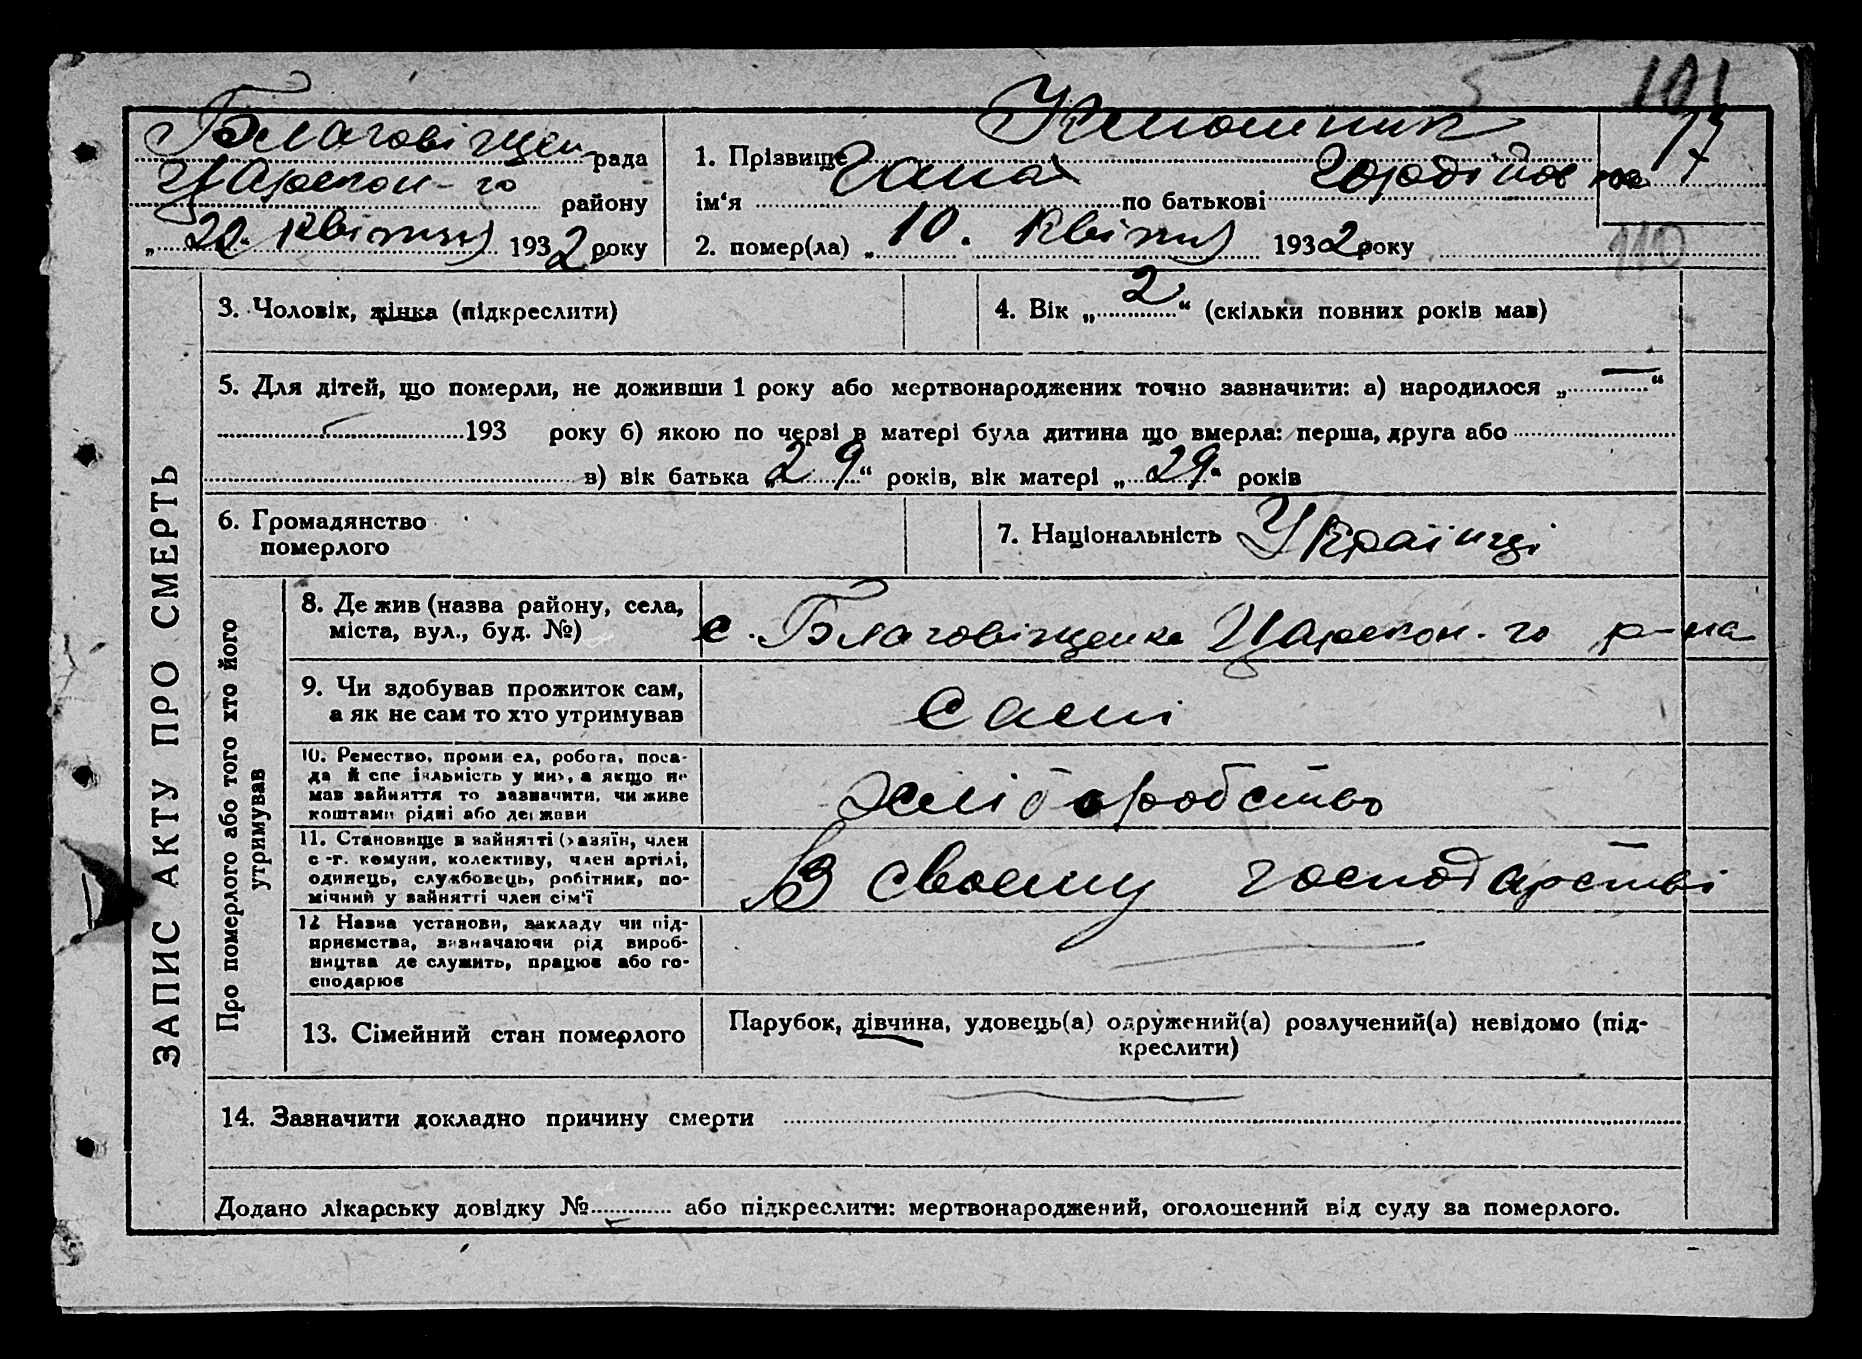 5 101
Благовіщен рада
Царекон-го району
„20“ квітня 1932 року
1. Прізвище
ім‘я Гана по батькові Гордіївна
2. помер(ла) „10. квітня 1932 року
17
110
ЗАПИС АКТУ ПРО СМЕРТЬ
3. Чоловік, жінка (підкреслити)
4. Вік „2“ (скільки повних років мав)
5. Для дітей, що померли, не доживши 1 року або мертвонароджених точно зазначити: а) народилося „—“
193 року б) якою по черзі в матері була дитина що вмерла: перша, друга або
в) вік батька „29“ років, вік матері „29“ років
6. Громадянство
померлого
7. Національність Українці
Про померлого або того хто його
утримував
8. Де жив (назва району, села,
міста, вул., буд. №)
с. Благовіщенка Царекон-го р-на
9. Чи здобував прожиток сам,
а як не сам то хто утримував
Самі
10. Ремество, промисел, робота, поса-
да й спеціяльність у них, а якщо не
мав зайняття то зазначити, чи живе
коштами рідні або держави
хліборобство
11. Становище в зайнятті (хазяїн, член
с.-г. комуни, колективу, член артілі,
одинець, службовець, робітник, по-
мічний у зайнятті член сім'ї
В своєму господарстві
12. Назва установи, закладу чи під-
приємства, визначаючи рід вироб-
ництва де служить, працює або го-
сподарює
13. Сімейний стан померлого
Парубок, дівчина, удовець(а) одружений(а) розлучений(а) невідомо (під-
креслити)
14. Зазначити докладно причину смерти
Додано лікарську довідку № або підкреслити: мертвонароджений, оголошений від суду за померлого.